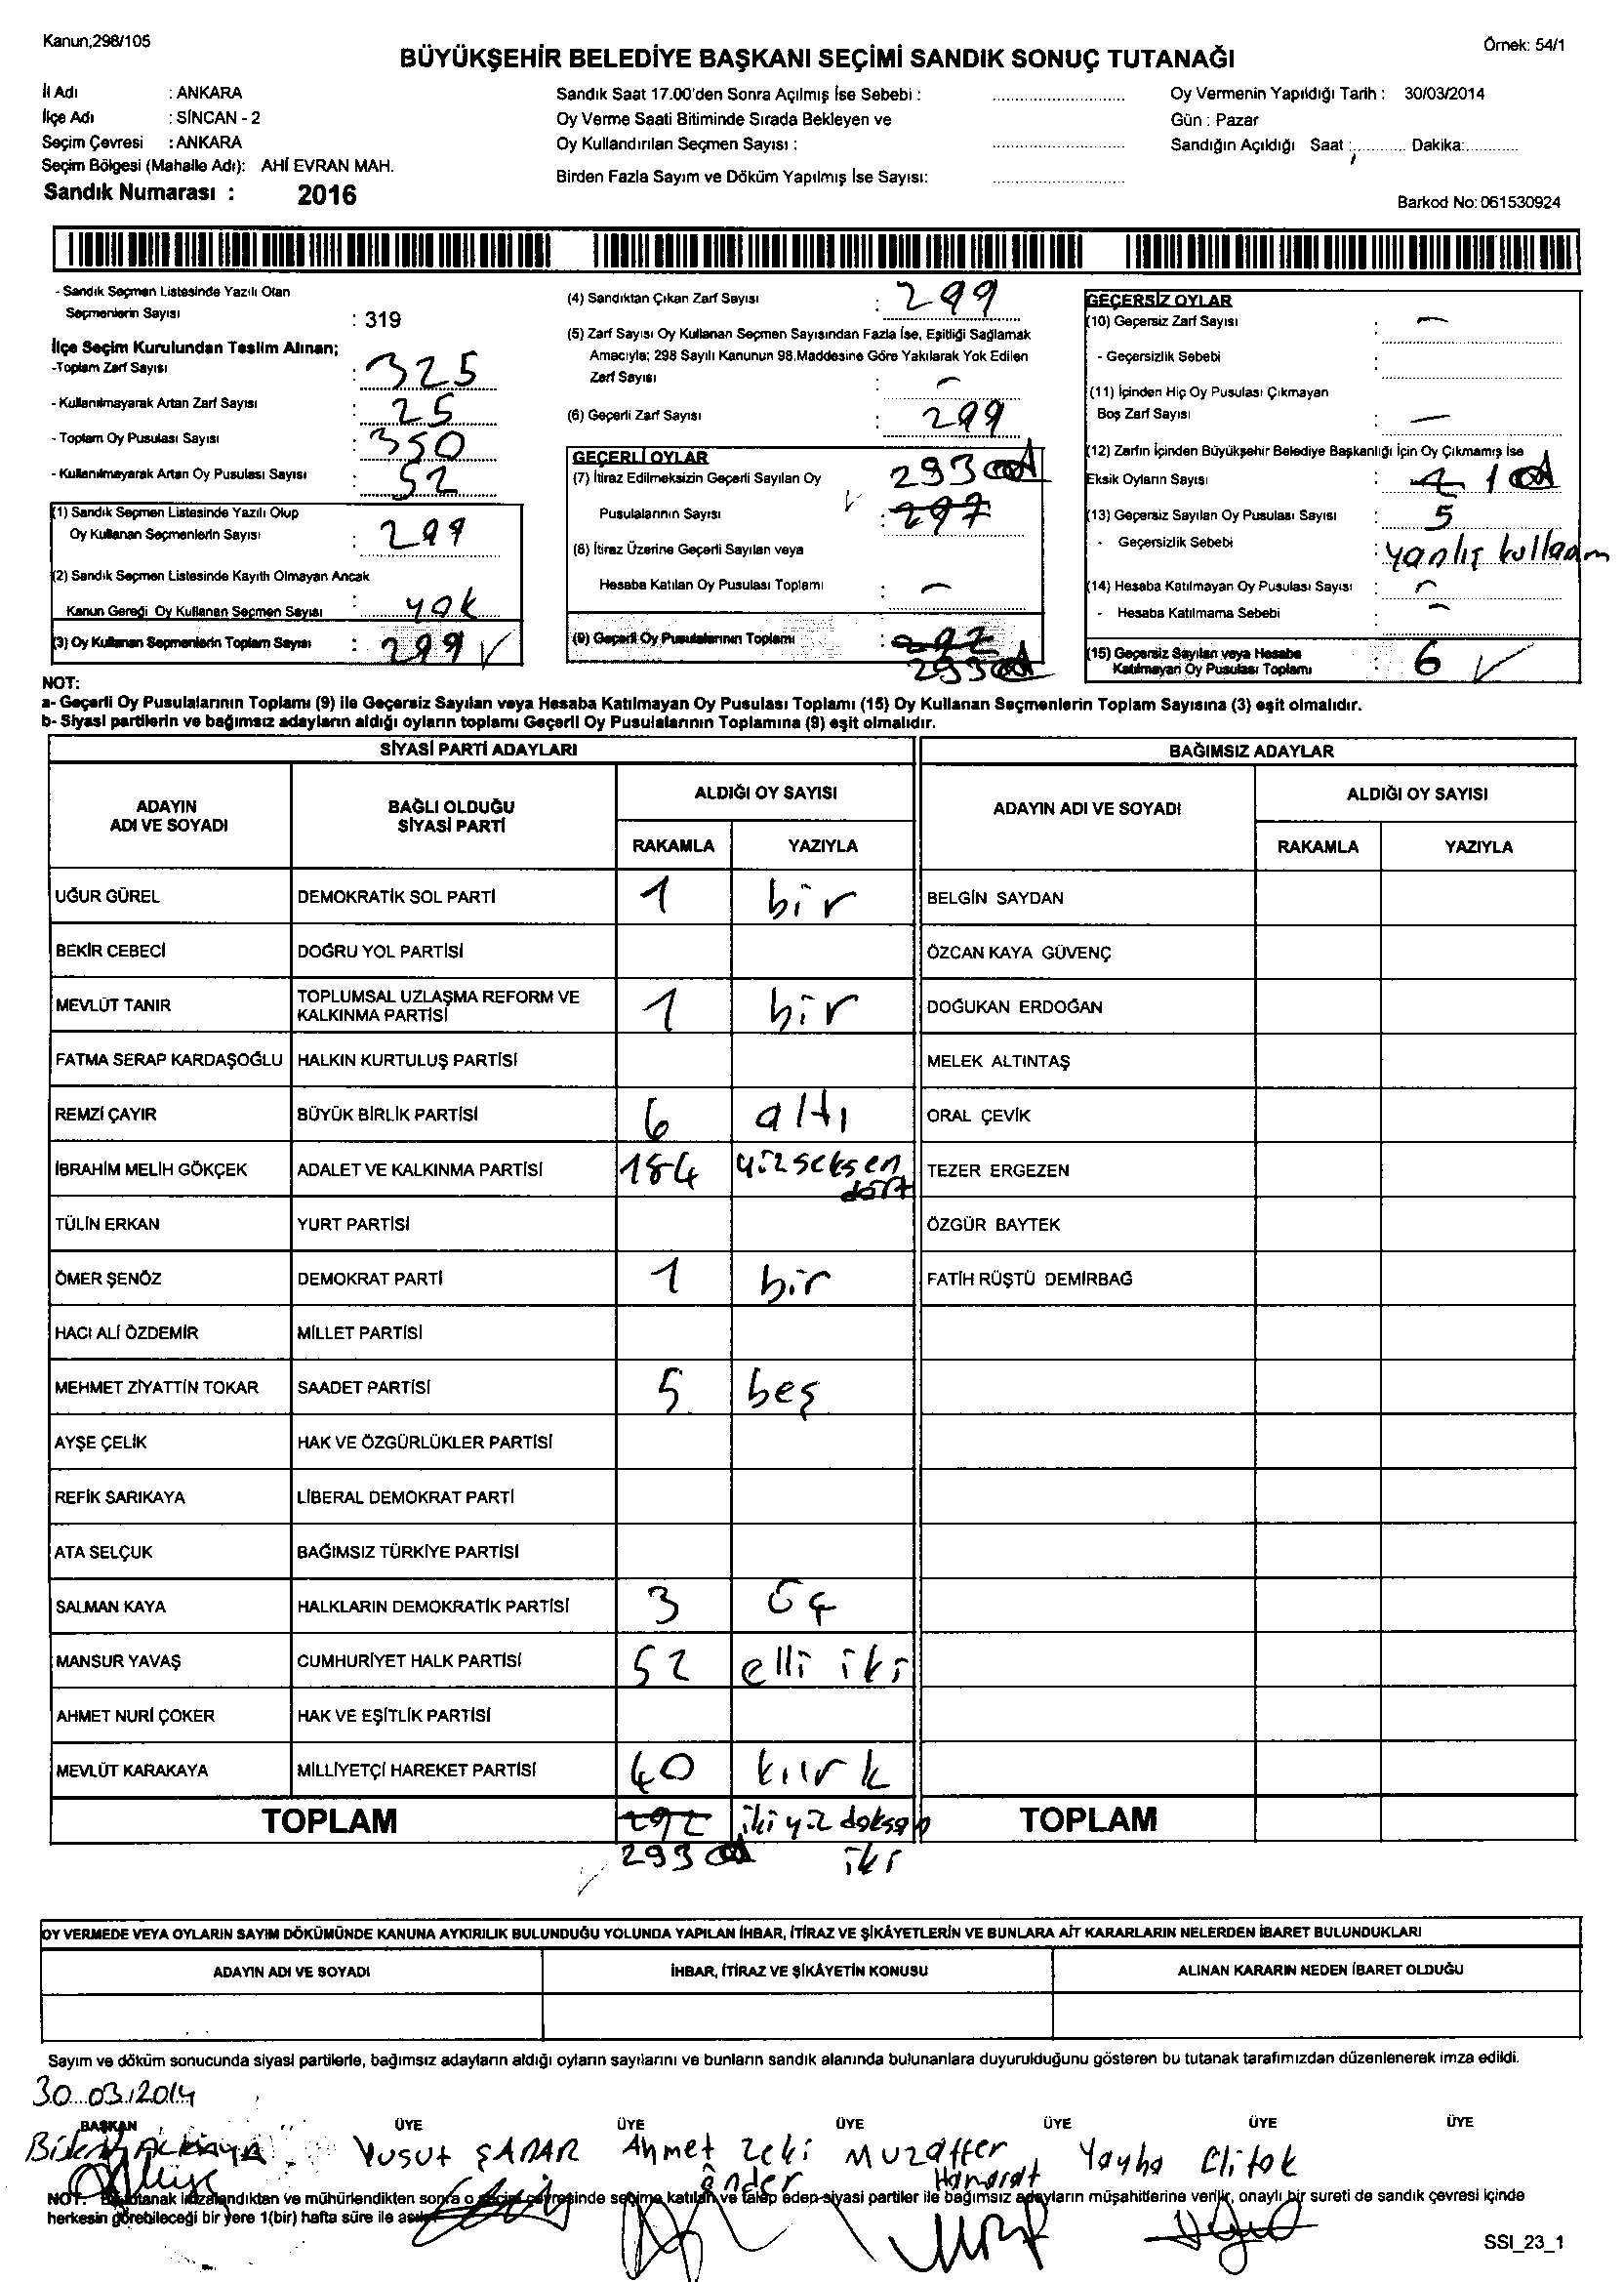 Kanun;298/105
Örnek: 54/1
BÜYÜKŞEHİR BELEDİYE BAŞKANI SEÇİMİ SANDIK SONUÇ TUTANAĞI
İl Adı : ANKARA
İlçe Adı : SİNCAN - 2
Seçim Çevresi : ANKARA
Seçim Bölgesi (Mahalle Adı): AHİ EVRAN MAH.
Sandık Numarası : 2016
Sandık Saat 17.00'den Sonra Açılmış İse Sebebi :
Oy Verme Saati Bitiminde Sırada Bekleyen ve
Oy Kullandırılan Seçmen Sayısı :
Birden Fazla Sayım ve Döküm Yapılmış İse Sayısı:
Oy Vermenin Yapıldığı Tarih : 30/03/2014
Gün : Pazar
Sandığın Açıldığı Saat :............ Dakika:............
Barkod No: 061530924
- Sandık Seçmen Listesinde Yazılı Olan
Seçmenlerin Sayısı : 319
İlçe Seçim Kurulundan Teslim Alınan;
-Toplam Zarf Sayısı : 325
- Kullanılmayarak Artan Zarf Sayısı : 25
- Toplam Oy Pusulası Sayısı : 350
- Kullanılmayarak Artan Oy Pusulası Sayısı : 52
(1) Sandık Seçmen Listesinde Yazılı Olup
Oy Kullanan Seçmenlerin Sayısı : 299
(2) Sandık Seçmen Listesinde Kayıtlı Olmayan Ancak
Kanun Gereği Oy Kullanan Seçmen Sayısı : yok
(3) Oy Kullanan Seçmenlerin Toplam Sayısı : 299
(4) Sandıktan Çıkan Zarf Sayısı : 299
(5) Zarf Sayısı Oy Kullanan Seçmen Sayısından Fazla İse, Eşitliği Sağlamak
Amacıyla; 298 Sayılı Kanunun 98.Maddesine Göre Yakılarak Yok Edilen
Zarf Sayısı : -
(6) Geçerli Zarf Sayısı : 299
GEÇERLİ OYLAR
(7) İtiraz Edilmeksizin Geçerli Sayılan Oy 293
Pusulalarının Sayısı : 297
(8) İtiraz Üzerine Geçerli Sayılan veya
Hesaba Katılan Oy Pusulası Toplamı : -
(9) Geçerli Oy Pusulalarının Toplamı : 292
293
GEÇERSİZ OYLAR
(10) Geçersiz Zarf Sayısı : -
- Geçersizlik Sebebi :
(11) İçinden Hiç Oy Pusulası Çıkmayan
Boş Zarf Sayısı : -
(12) Zarfın İçinden Büyükşehir Belediye Başkanlığı İçin Oy Çıkmamış İse
Eksik Oyların Sayısı : 1
(13) Geçersiz Sayılan Oy Pusulası Sayısı : 5
- Geçersizlik Sebebi : yanlış kullanım
(14) Hesaba Katılmayan Oy Pusulası Sayısı : -
- Hesaba Katılmama Sebebi : -
(15) Geçersiz Sayılan veya Hesaba
Katılmayan Oy Pusulası Toplamı : 6
NOT:
a- Geçerli Oy Pusulalarının Toplamı (9) ile Geçersiz Sayılan veya Hesaba Katılmayan Oy Pusulası Toplamı (15) Oy Kullanan Seçmenlerin Toplam Sayısına (3) eşit olmalıdır.
b- Siyasi partilerin ve bağımsız adayların aldığı oyların toplamı Geçerli Oy Pusulalarının Toplamına (9) eşit olmalıdır.
SİYASİ PARTİ ADAYLARI
BAĞIMSIZ ADAYLAR
ADAYIN
ADI VE SOYADI
BAĞLI OLDUĞU
SİYASİ PARTİ
ALDIĞI OY SAYISI
RAKAMLA YAZIYLA
ADAYIN ADI VE SOYADI
ALDIĞI OY SAYISI
RAKAMLA YAZIYLA
UĞUR GÜREL DEMOKRATİK SOL PARTİ 1 bir BELGİN SAYDAN
BEKİR CEBECİ DOĞRU YOL PARTİSİ ÖZCAN KAYA GÜVENÇ
MEVLÜT TANIR TOPLUMSAL UZLAŞMA REFORM VE
KALKINMA PARTİSİ 1 bir DOĞUKAN ERDOĞAN
FATMA SERAP KARDAŞOĞLU HALKIN KURTULUŞ PARTİSİ MELEK ALTINTAŞ
REMZİ ÇAYIR BÜYÜK BİRLİK PARTİSİ 6 altı ORAL ÇEVİK
İBRAHİM MELİH GÖKÇEK ADALET VE KALKINMA PARTİSİ 184 yüzseksen
dört TEZER ERGEZEN
TÜLİN ERKAN YURT PARTİSİ ÖZGÜR BAYTEK
ÖMER ŞENÖZ DEMOKRAT PARTİ 1 bir FATİH RÜŞTÜ DEMİRBAĞ
HACI ALİ ÖZDEMİR MİLLET PARTİSİ
MEHMET ZİYATTİN TOKAR SAADET PARTİSİ 5 beş
AYŞE ÇELİK HAK VE ÖZGÜRLÜKLER PARTİSİ
REFİK SARIKAYA LİBERAL DEMOKRAT PARTİ
ATA SELÇUK BAĞIMSIZ TÜRKİYE PARTİSİ
SALMAN KAYA HALKLARIN DEMOKRATİK PARTİSİ 3 üç
MANSUR YAVAŞ CUMHURİYET HALK PARTİSİ 52 elli iki
AHMET NURİ ÇOKER HAK VE EŞİTLİK PARTİSİ
MEVLÜT KARAKAYA MİLLİYETÇİ HAREKET PARTİSİ 40 kırk
TOPLAM 292 iki yüz doksan TOPLAM
293 iki
OY VERMEDE VEYA OYLARIN SAYIM DÖKÜMÜNDE KANUNA AYKIRILIK BULUNDUĞU YOLUNDA YAPILAN İHBAR, İTİRAZ VE ŞİKÂYETLERİN VE BUNLARA AİT KARARLARIN NELERDEN İBARET BULUNDUKLARI
ADAYIN ADI VE SOYADI İHBAR, İTİRAZ VE ŞİKÂYETİN KONUSU ALINAN KARARIN NEDEN İBARET OLDUĞU
Sayım ve döküm sonucunda siyasi partilerle, bağımsız adayların aldığı oyların sayılarını ve bunların sandık alanında bulunanlara duyurulduğunu gösteren bu tutanak tarafımızdan düzenlenerek imza edildi.
30.03.2014
BAŞKAN ÜYE ÜYE ÜYE ÜYE ÜYE ÜYE
Yusuf ŞANAR Ahmet Zeki Muzaffer Yayha Elitok
Önder Hamarat
NOT: Bu tutanak imzalandıktan ve mühürlendikten sonra o seçim çevresinde seçime katılan ve talep eden siyasi partiler ile bağımsız adayların müşahitlerine verilir, onaylı bir sureti de sandık çevresi içinde
herkesin görebileceği bir yere 1(bir) hafta süre ile asılır.
SSI_23_1